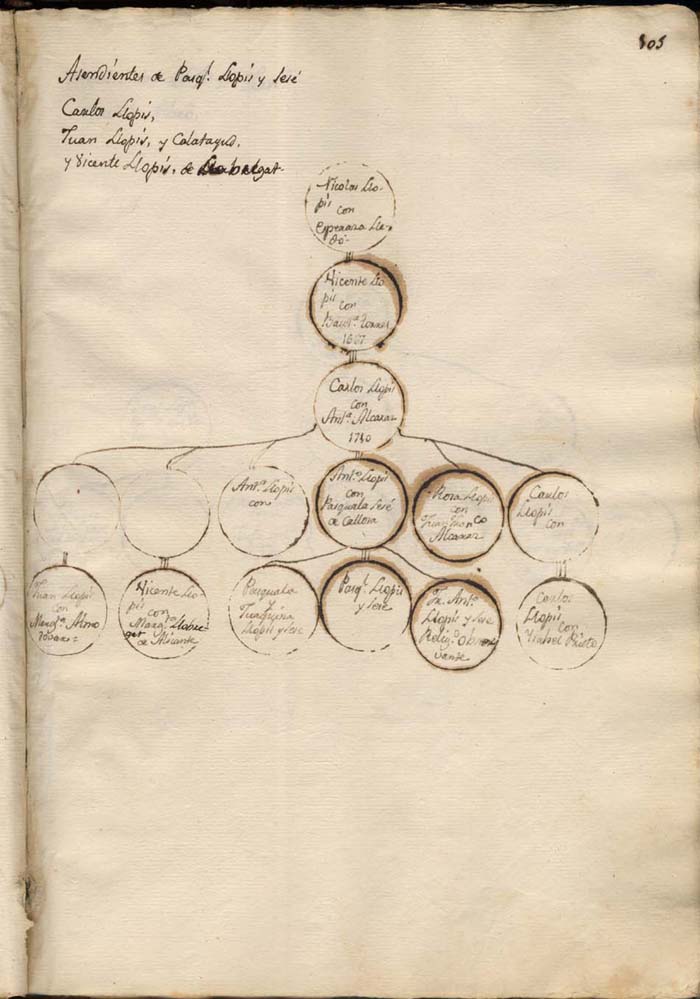 305
Asendientes de Pasql. Llopis y Sesé
Carlos Llopis,
Juan Llopis, y Calatayud,
y Vicente Llopis, de Llobregat.
Nicolas Llo-
pis
con
Esperanza
Vicente Llo
pis
con
Torres
Carlos Llopis
con
Anta. Alcaraz
1740
Anto. Llopis
con
Anto. Llopis
con
Pasquala Sesé
de Callosa
Rosa Llopis
con
Juan Franco
Alcaraz
Carlos
Llopis
con
Juan Llopis
con
Vicente Llo-
pis
con
Llobre-
gat
de Alicante
Pasquala
y
Juaquina
Llopis y Sese
Pasql. Llopis
y Sese
Fr. Anto.
Llopis y Sese
Religo. Obser
vante
Carlos
Llopis
con
Ysabel